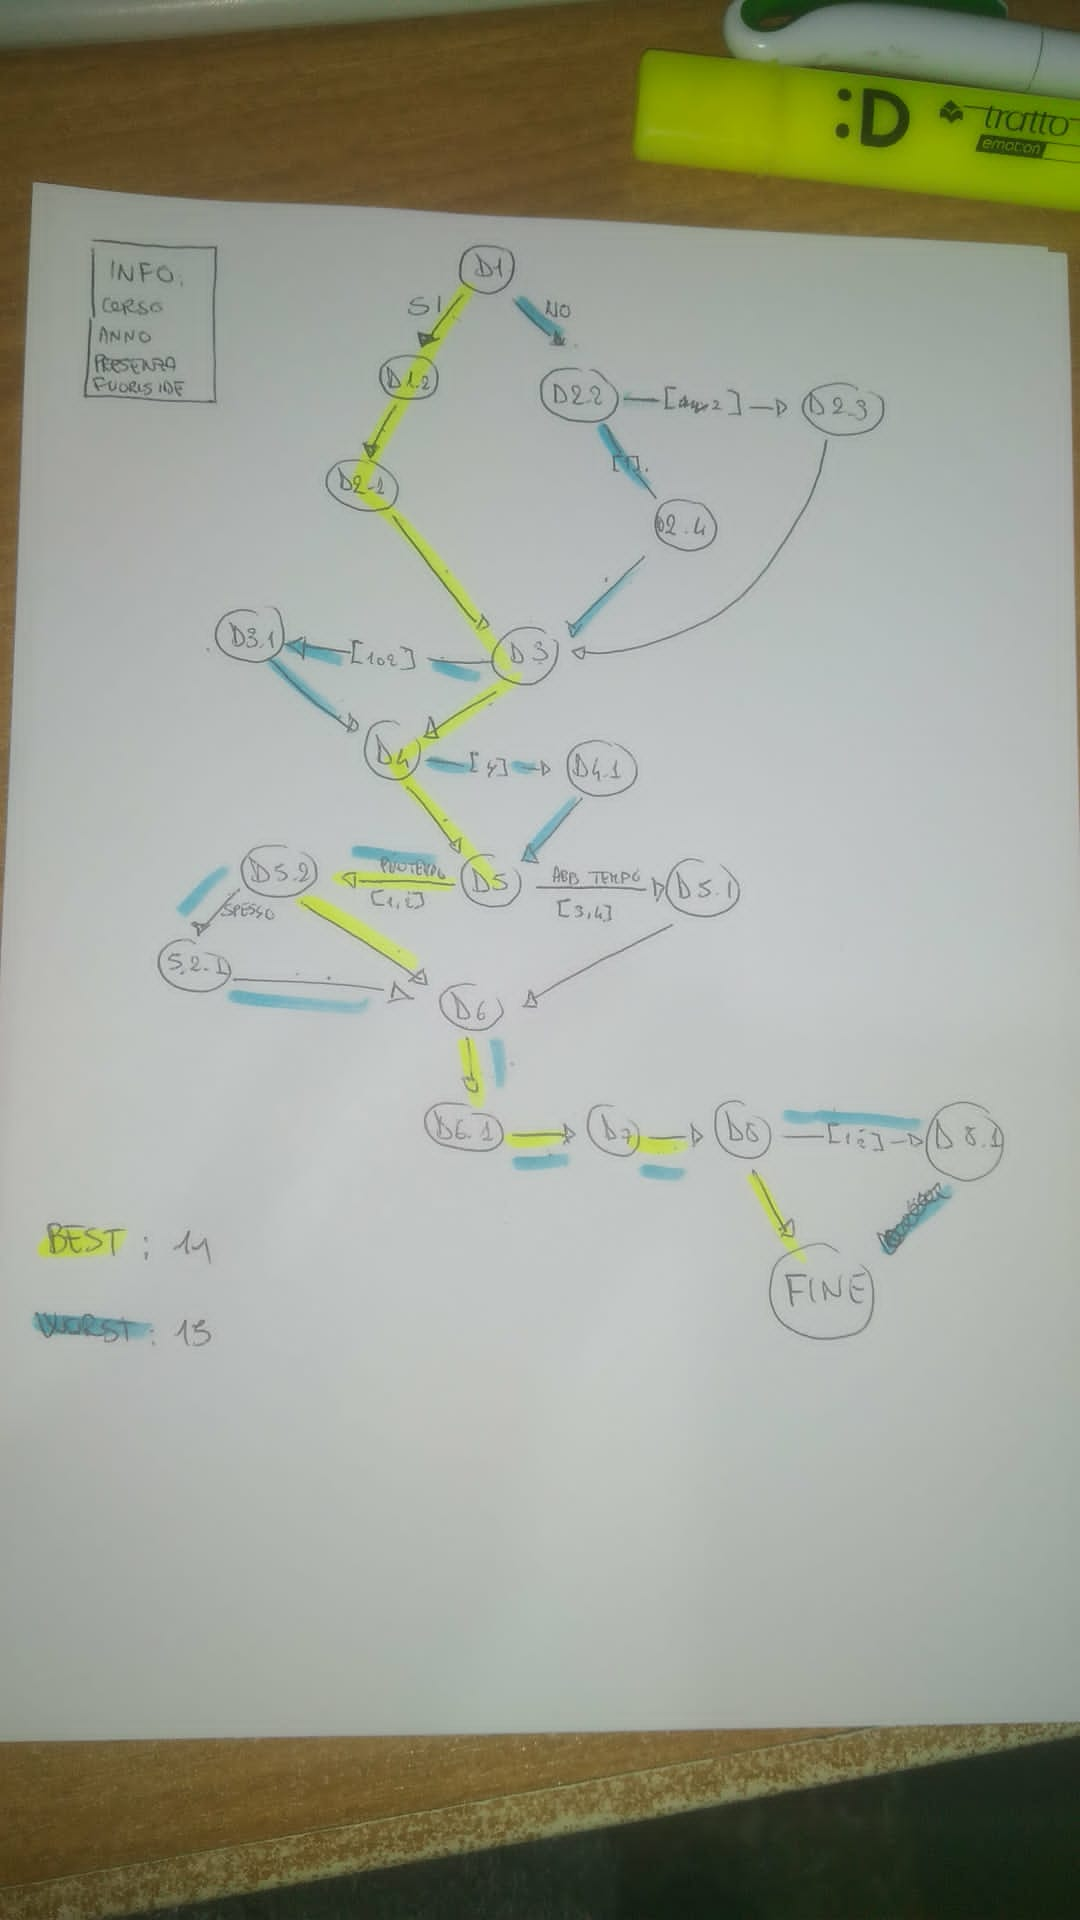 :D tratto
emotion
INFO.
CORSO
ANNO
PRESENZA
FUORISIDE
D1
SI
NO
D1.2
D2.2
D2.3
D2-1
[1].
D2.4
D3.1
[1o2]
D3
D4
[4]
D4.1
D5.2
PIÙ TEMPO
[1,2]
D5
ABB TEMPO
[3,4]
D5.1
SPESSO
5.2.1
D6
D6.1
D7
D8
[12]
D8.1
BEST : 11
FINE
WORST : 15